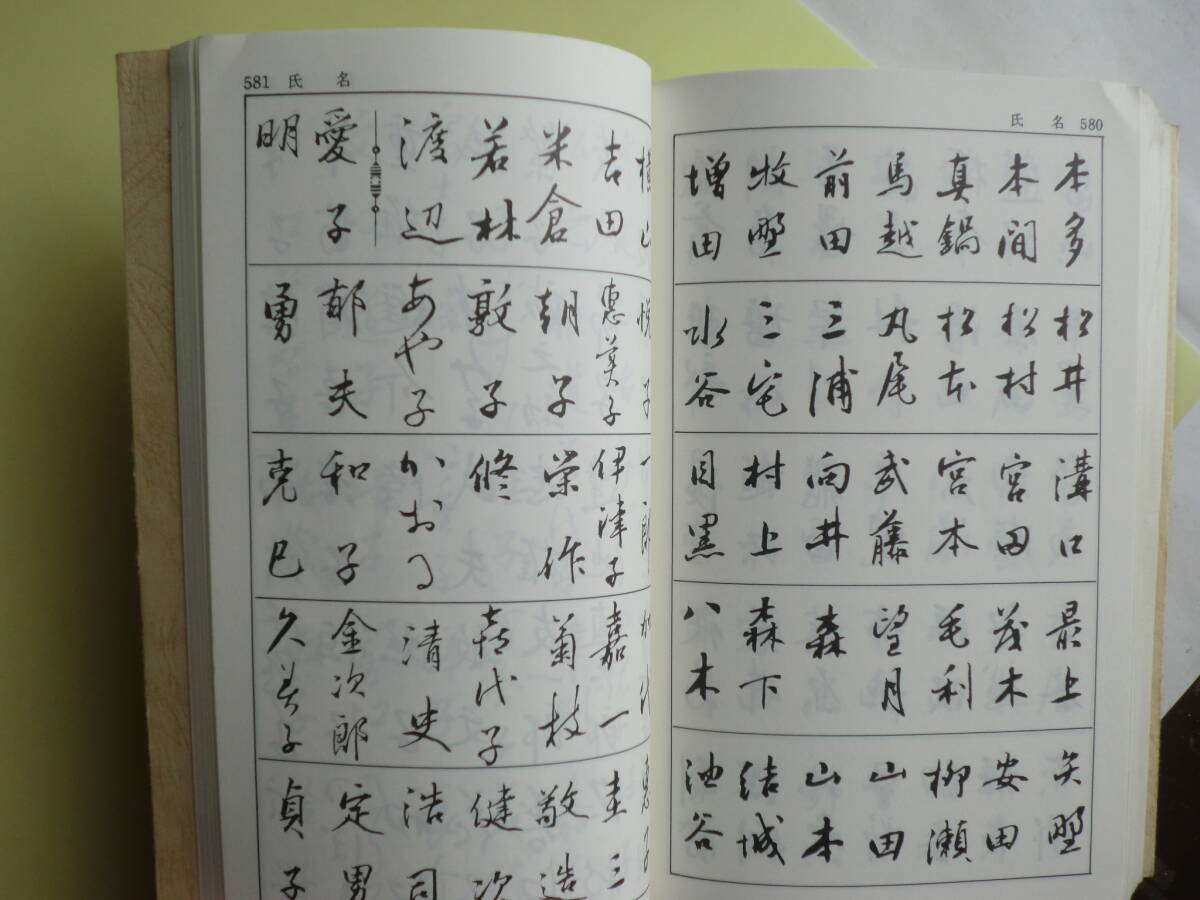 氏 名 580
本多
本間
真鍋
馬越
前田
牧野
増田
松井
松村
松本
丸尾
三浦
三宅
水谷
溝口
宮田
宮本
武藤
向井
村上
目黒
最上
茂木
毛利
望月
森
森下
八木
矢野
安田
柳瀬
山田
山本
結城
油谷
581 氏 名
吉田
米倉
若林
渡辺
愛子
明
悦子
恵美子
朝子
敦子
あや子
郁夫
勇
一郎
伊津子
栄作
修
かおる
和子
克巳
嘉一
菊枝
喜代子
清史
金次郎
久美子
圭三
敬造
健次
浩司
定男
貞子